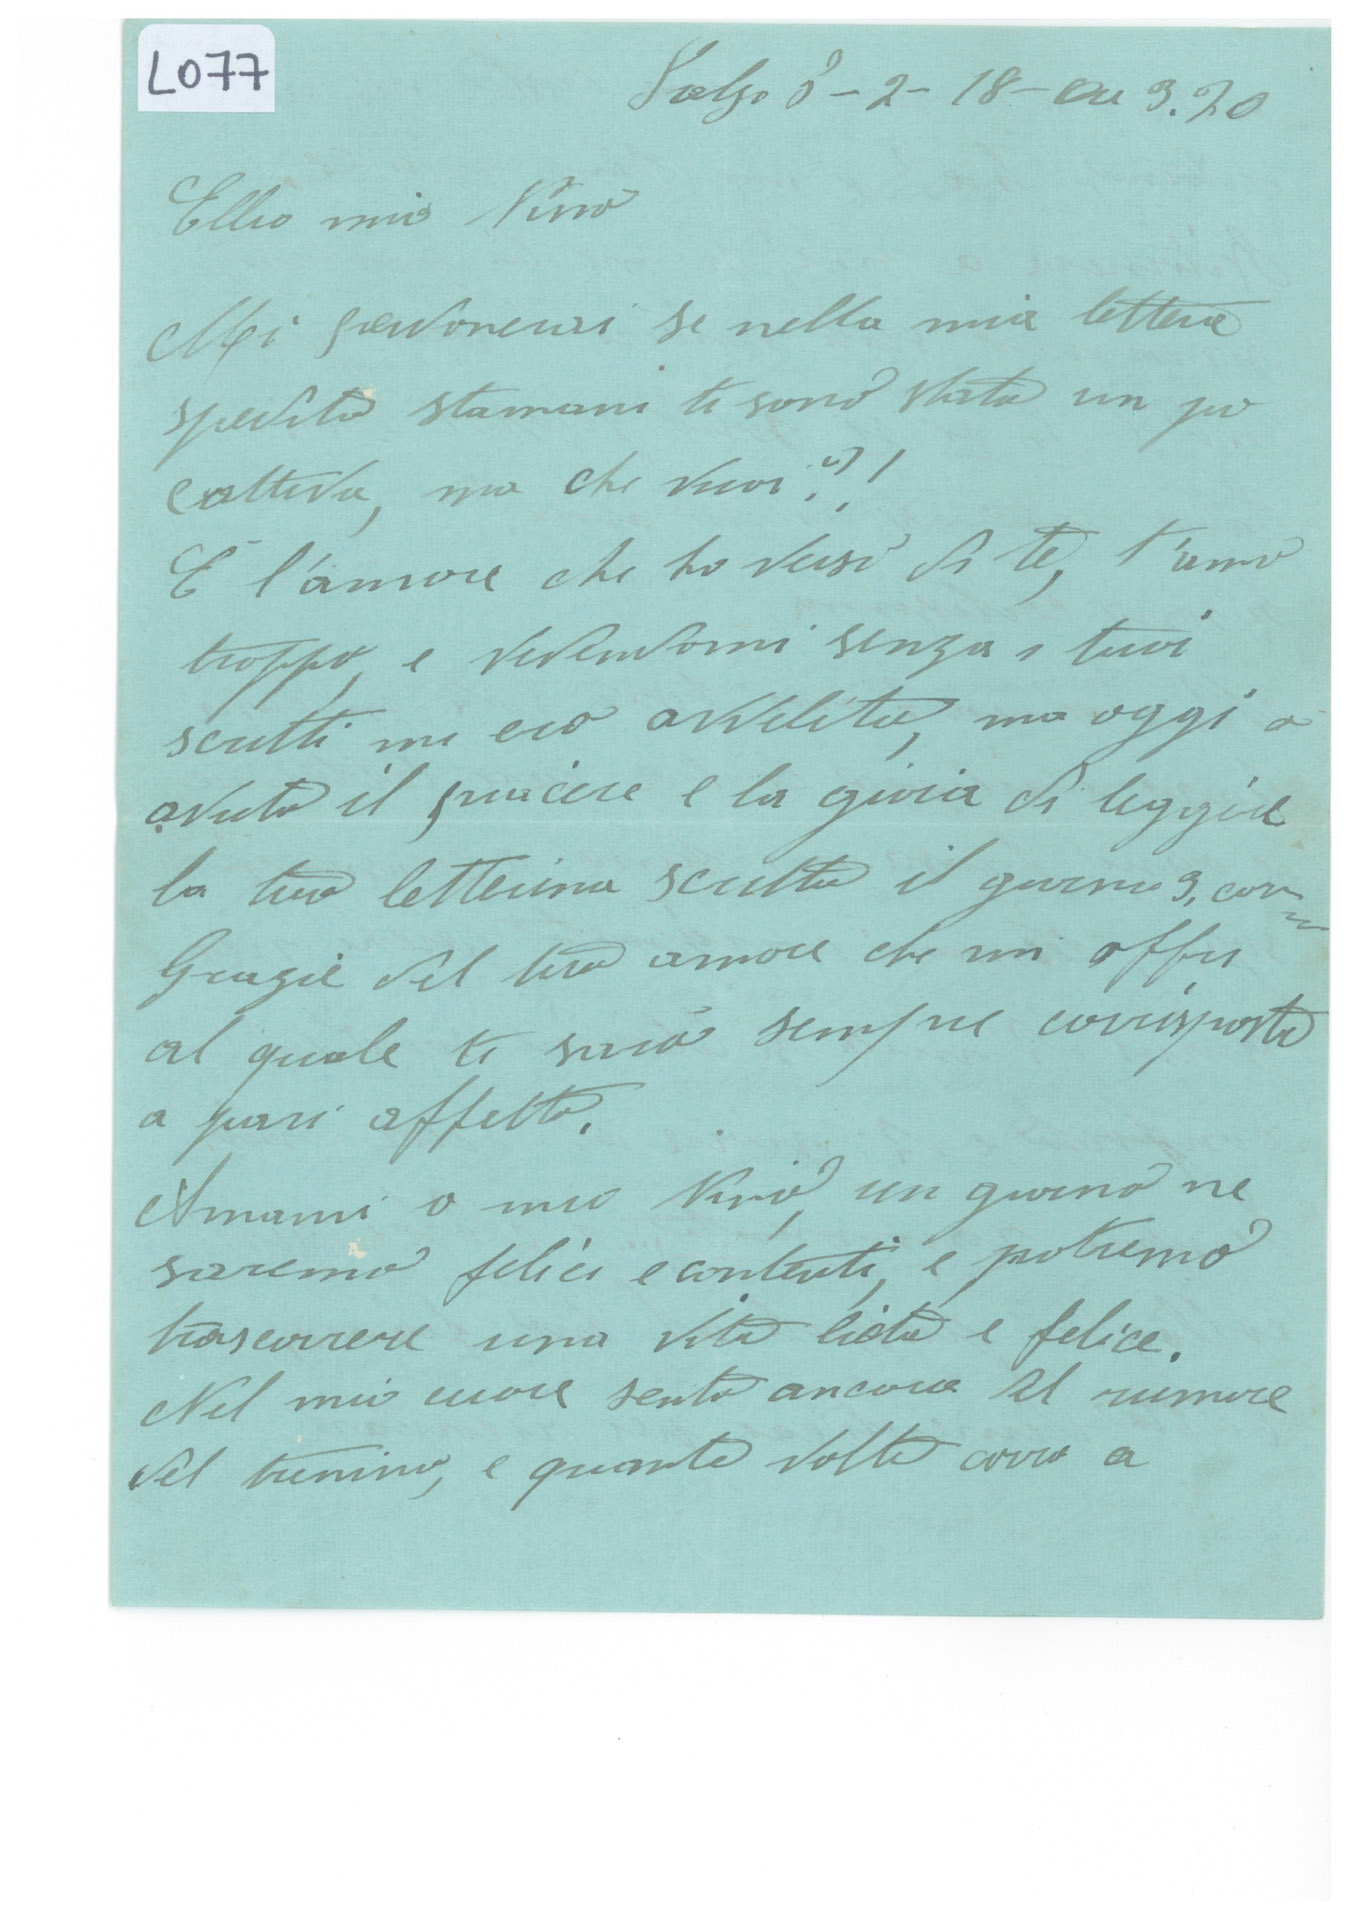 L077
Salso 8-2-18- Ore 3.20
Ellio mio Nino
Mi perdonerai se nella mia lettera
spedita stamani ti sono stata un po
cattiva, ma che vuoi?!
E l'amore che ho verso di te, t'amo
troppo, e vedendomi senza i tuoi
scritti mi ero avvilita, ma oggi o
avuto il piacere e la gioia di leggere
la tua letterina scritta il giorno 3, corr
Grazie del tuo amore che mi offri
al quale ti sarà sempre corrisposto
a pari affetto.
Amami o mio Nino, un giorno ne
saremo felici e contenti, e potremo
trascorrere una vita lieta e felice.
Nel mio cuore sento ancora il rumore
del trenino, e quante volte corro a